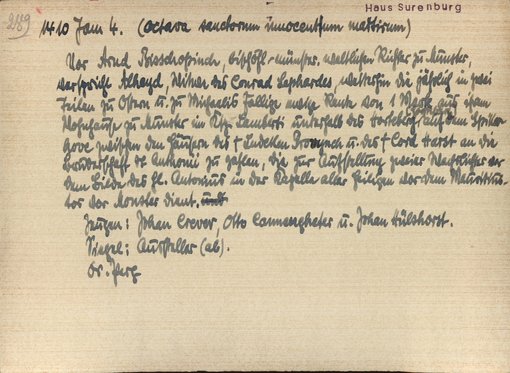 Haus Surenburg
289
1410 Jan 4. (octava sanctorum innocentium martirum)
Vor Arnd Bisschopinch, bischöfl.-münster. weltlichen Richter zu Münster,
verspricht Alheyd, Witwe des Conrad Lephardes, weiterhin die jährlich in zwei
Teilen zu Ostern u. zu Michaelis fällige ewige Rente von 1 Mark aus ihrem
Wohnhause zu Münster im Ksp. Lamberti unterhalb des auf dem
zwischen den Häusern des † Ludeken u. des † Cord Harst an die
Bruderschaft St. Anthonii zu zahlen, die zur Aufstellung zweier Wachslichter vor
dem Bilde des hl. Antonius in der Kapelle aller Heiligen vor dem Mauritius-
tor vor Monster dient.
Zeugen: Johan Crever, Otto u. Johan Hülshorst.
Siegel: Aussteller (ab).
Or. Perg